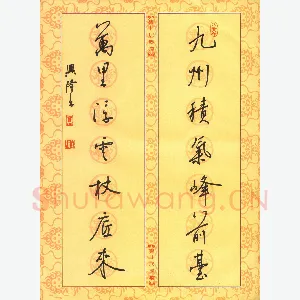 九州積氣峰前臺
萬里浮雲杖底來
興隆書
Shufawang.CN